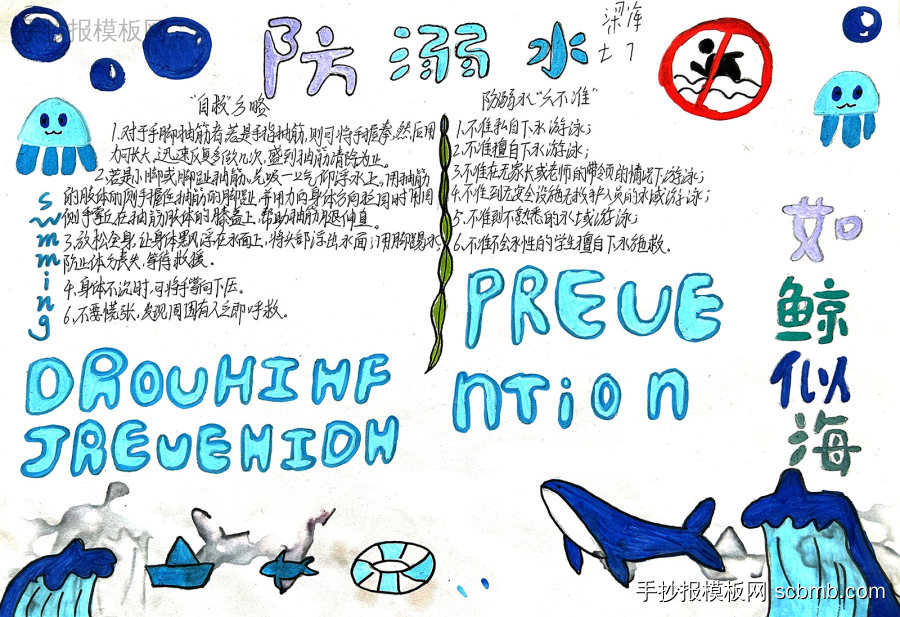 手抄报模板网
防溺水
"自救"方略
1.对于手脚抽筋者,若是手指抽筋,则可将手握拳,然后用
力张大,迅速反复多做几次,直到抽筋消除为止。
2.若是小腿或脚趾抽筋,先吸一口气,仰浮水上,用抽筋
的肢体的侧手握住抽筋的脚趾,并用力向身体方向拉,同时用同
侧手掌压在抽筋肢体的膝盖上,帮助抽筋腿伸直
3.放松全身,让身体飘浮在水面上,将头部浮出水面,用脚踢水
防止体力丧失,等待救援。
4.身体下沉时,可将手掌向下压。
6.不要慌张,发现周围有人立即呼救。
防溺水"六不准"
1.不准私自下水游泳;
2.不准擅自下水游泳;
3.不准在无家长或老师的带领的情况下游泳;
4.不准到无安全设施无救护人员的水域游泳;
5.不准到不熟悉的水域游泳;
6.不准不会水性的学生擅自下水施救。
swmming
DROUHINF
JREUEHIDH
PREUE
NTiON
如鲸似海
手抄报模板网 scbmb.com